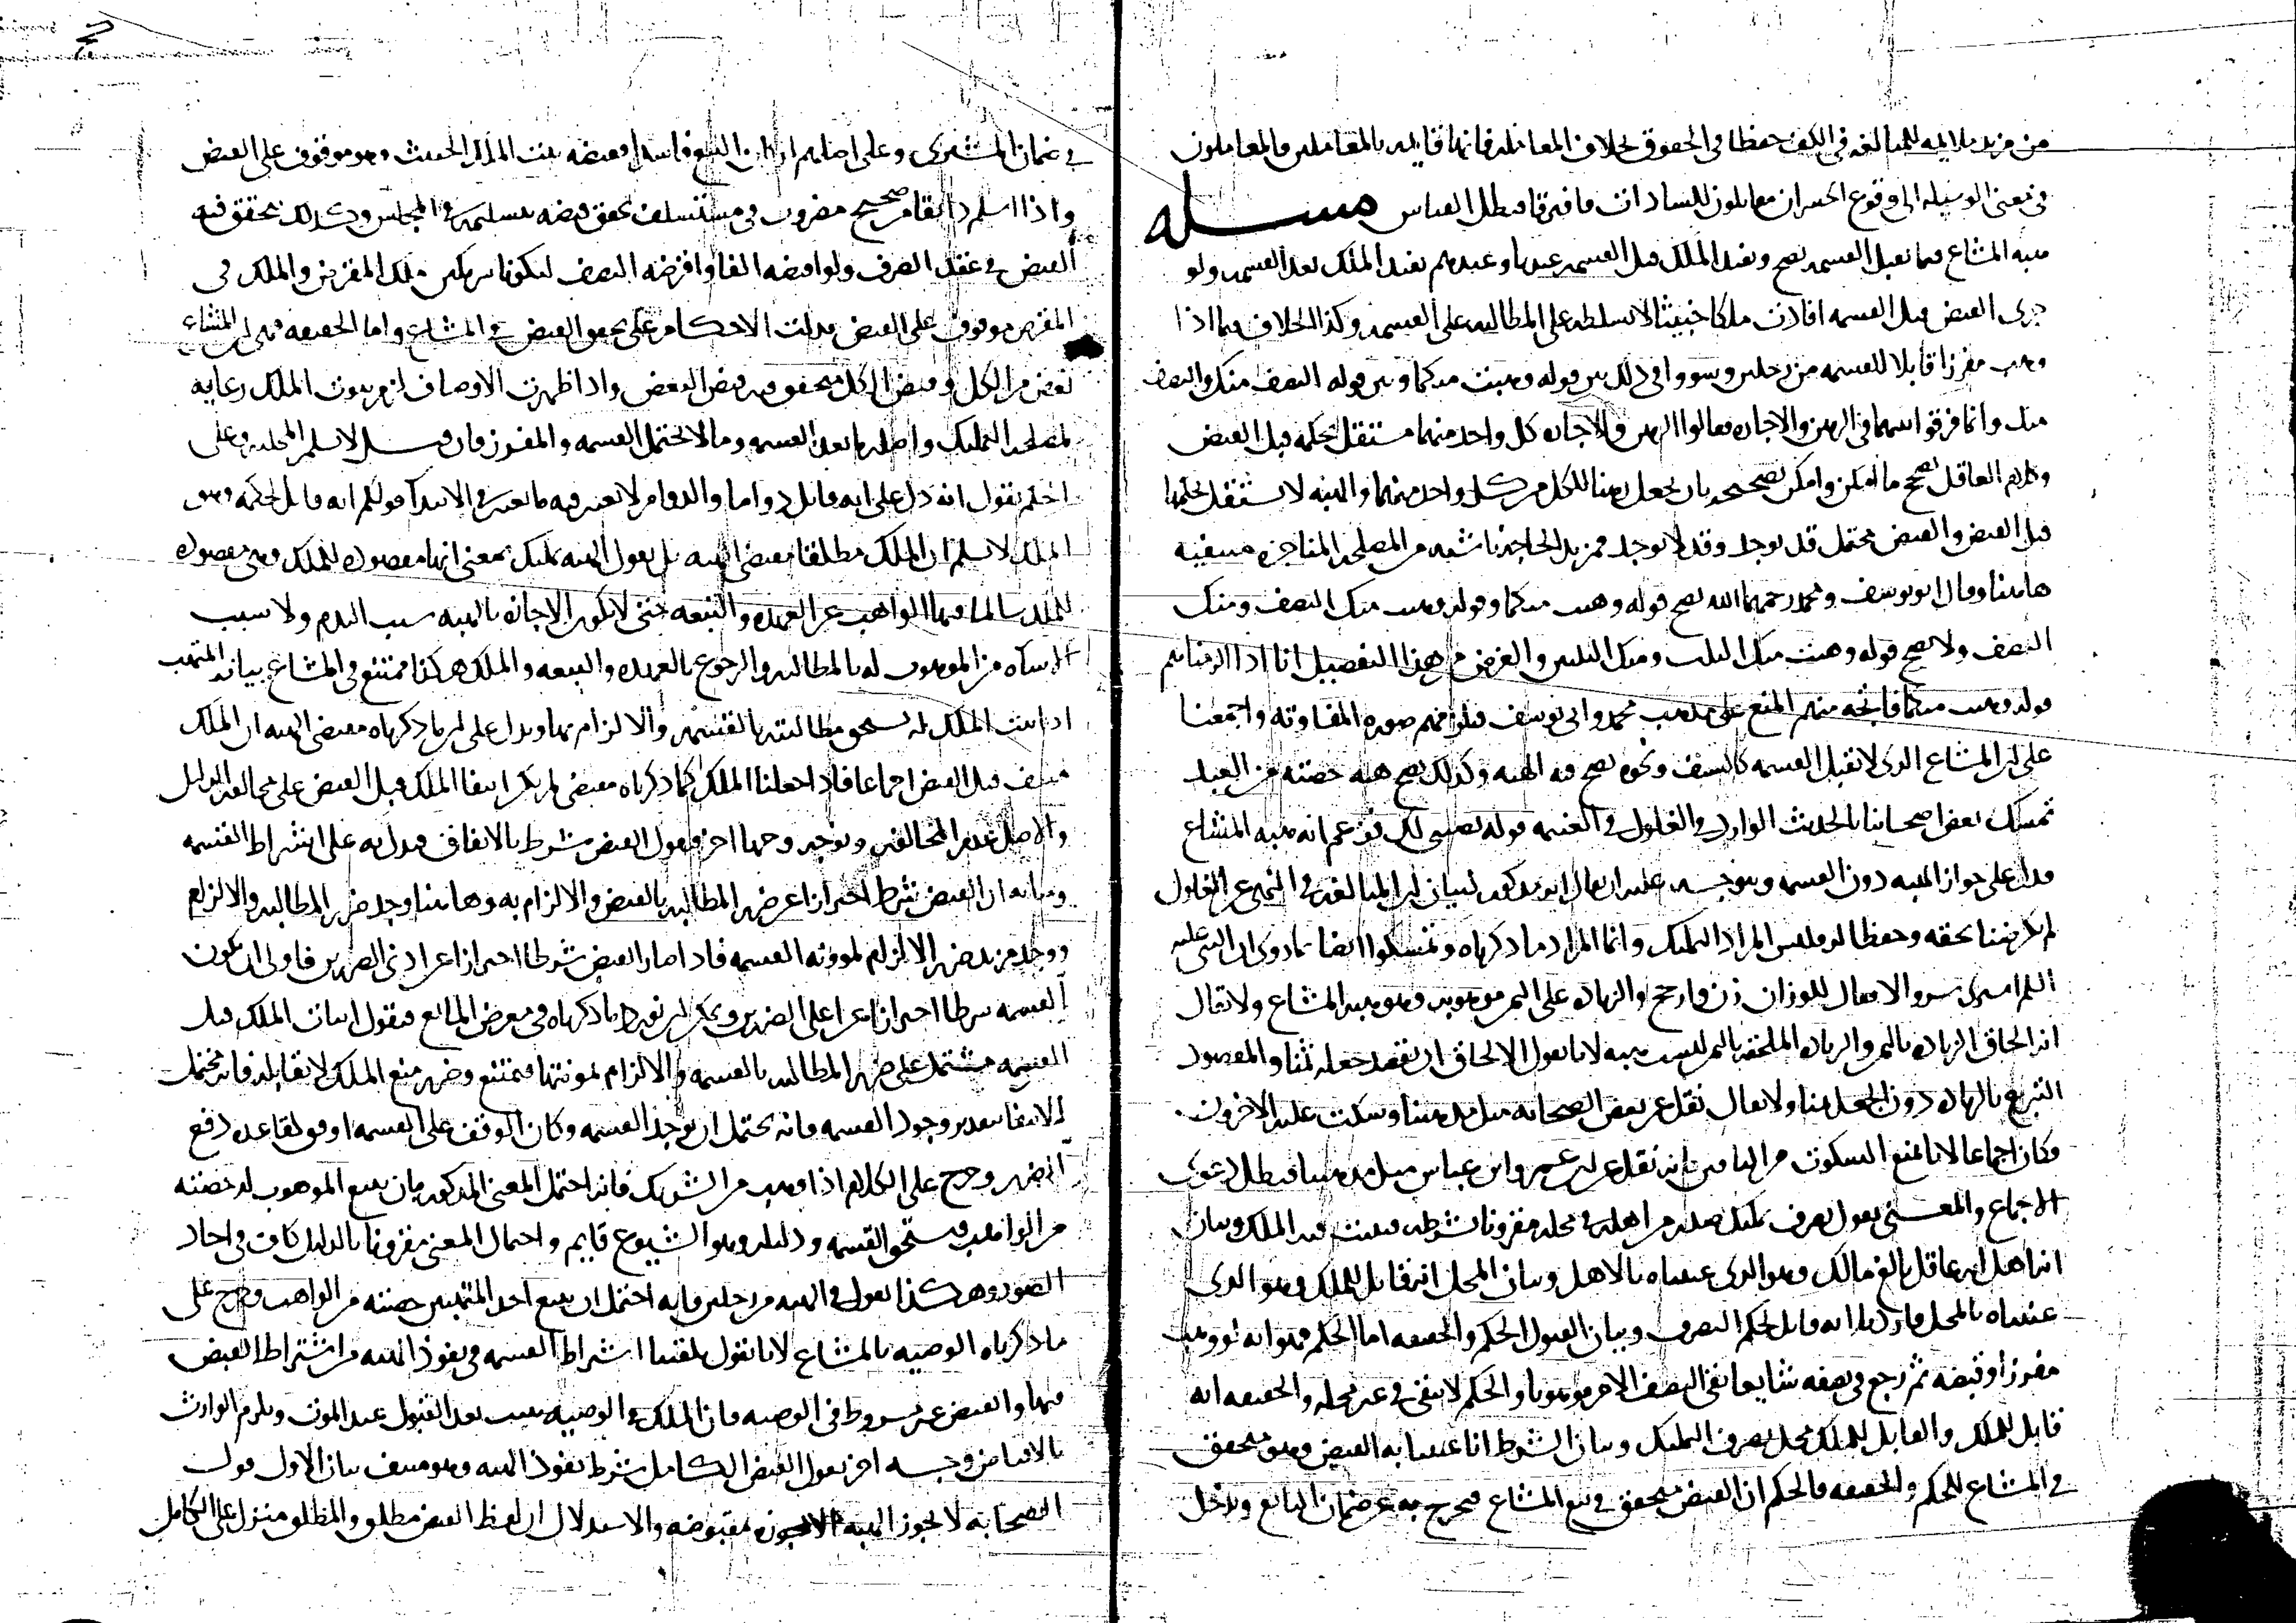 من مزيد ملايمه للمبالغه في الكف حفظا في الحقوق بخلاف المعامله فانها قايمه بالمعاملين والمعاملون
في معنى الوسيله الى وقوع الخسران معاملون للسادات فافترقا فبطل القياس مسله
هبه المشاع فيما يقبل القسمه يصح ويفيد الملك قبل القسمه عندنا وعندهم يفيد الملك بعد القسمه ولو
جرى القبض قبل القسمه افادت ملكا خبيثا لا تسلطه على المطالبه على القسمه وكذا الخلاف فيما اذا
وهب مفرزا قابلا للقسمه من رجلين وسووا في ذلك بين قوله وهبت منكما وبين قوله النصف منك والنصف
منك وانما فرقوا بينهما في الرهن والاجاره فقالوا الرهن والاجاره كل واحد منهما مستقل بحكمه قبل القبض
وكلام العاقل يصحح ما امكن وامكن تصحيحه بان يجعل رهنا للكل من كل واحد منهما والهبه لا تستقل بحكمها
قبل القبض والقبض محتمل قد يوجد وقد لا يوجد فمزيد الحاجه ناشئه من المصلحه المناجزه منتفيه
هاهنا وقال ابو يوسف ومحمد رحمهما الله يصح قوله وهبت منكما وقوله وهبت منك النصف ومنك
النصف ولا يصح قوله وهبت منك الثلث ومنك الثلثين والغرض من هذا التفصيل انا اذا الزمناهم
قوله وهبت منكما فاتجه منهم المنع على مذهب محمد وابي يوسف فيلزمهم صوره المفاوته واجمعنا
على ان المشاع الذي لا يقبل القسمه كالسيف ونحوه يصح فيه الهبه وكذلك يصح هبه حصته من العبد
تمسك بعض اصحابنا بالحديث الوارد في الغلول في الغنيمه قوله نصيبي لك فزعم انه هبه المشاع
فدل على جواز الهبه دون القسمه ويتوجه عليه ان يقال انه مذكور لبيان ان المبالغه في النهي عن الغلول
لم يكن هبنا بحقه وحفظا له وليس المراد التمليك وانما المراد ما ذكرناه وتمسكوا ايضا بما روي ان النبي عليه
السلم اشترى سراويل فقال للوزان زن وارجح والزياده على الثمن موهوبه وهو هبه المشاع ولا يقال
انه الحاق الزياده بالثمن والزياده الملحقه بالثمن ليست بهبه لانا نقول الالحاق ان يقصد جعله ثمنا والمقصود
التبرع بالزياده دون الجعل ثمنا ولا يقال نقل عن بعض الصحابه مثل مذهبنا وسكت عليه الاخرون
وكان اجماعا لانا نمنع السكوت من الباقين فانه نقل عن ابن عمر وابن عباس مثل مذهبنا فبطل دعوى
الاجماع والمعنى نقول تصرف تمليك صدر من اهله في محله مقرونا بشرطه فيثبت فيه الملك وبيان
انه اهل انه عاقل بالغ مالك وهو الذي عنيناه بالاهل وبيان المحل انه قابل للملك وهو الذي
عنيناه بالمحل فان قيل انه قابل لحكم التصرف وبيان القبول الحكم والحقيقه اما الحكم فهو انه لو وهب
مفرزا وقبضه ثم رجع في نصفه شايعا بقي النصف الاخر موهوبا والحكم لا يبقى في غير محله والحقيقه انه
قابل للملك والقابل للملك محل تصرف التمليك وبيان الشرط انا عنينا به القبض وهو متحقق
في المشاع للحكم والحقيقه فالحكم ان القبض يتحقق في بيع المشاع فيخرج به عن ضمان البايع ويدخل
في ضمان المشتري وعلى اصلهم ان كان البيع فاسدا فقبضه يثبت الملك الخبيث وهو موقوف على القبض
واذا اسلم دانقا من صحيح مضروب في مستسلف تحقق قبضه بتسليمه في المجلس وكذلك يتحقق فيه
القبض في عقد الصرف ولو اقبضه الفا واقرضه النصف ليكونا شريكين ملك المقرض والملك في
القرض موقوف على القبض فدلت الاحكام على تحقق القبض في المشاع واما الحقيقه فهي ان المشاع
بعض من الكل وقبض الكل متحقق فيه قبض البعض واذا ظهرت الاوصاف لزم ثبوت الملك رعايه
لمصلحه التمليك واصله ما بعد القسمه وما لا يحتمل القسمه والمفرز فان قيل لا نسلم المحليه وعلى
الحكم نقول انه دل على انه قابل دواما والدوام لا يعتبر فيه ما يعتبر في الابتدا قولكم انه قابل لحكمه وهو
الملك لا نسلم ان الملك مطلقا مقتضى الهبه بل نقول الهبه تمليك بمعنى انها مقصوده للملك وهي مقصوده
للملك سالما فيها الواهب عن العهده والتبعه حتى لا يكون الاجازه بالهبه سبب الندم ولا سبب
الاساه من الموهوب له بالمطالبه والرجوع بالعهده والتبعه والملك هكذا ممتنع في المشاع بيانه المتهب
اذا ثبت الملك له يستحق مطالبته بالقسمه والالزام بها ويدل على ان ما ذكرناه مقتضى الهبه ان الملك
منتف قبل القبض اجماعا فاذا جعلنا الملك كما ذكرناه مقتضى لم يكن انتفا الملك قبل القبض على مخالفه الدليل
والاصل عدم المخالفه ويوجه وجها اخر فنقول القبض مشروط بالاتفاق فدل به على اشتراط القسمه
وبيانه ان القبض شرط احترازا عن ضرر المطالبه بالقبض والالزام به وهاهنا وجد ضرر المطالبه والالزام
ووجد مزيد ضرر الالزام لمؤونه القسمه فاذا صار القبض شرطا احترازا عن ادنى الضررين فاولى ان يكون
القسمه شرطا احترازا عن اعلى الضررين ويمكن ان نورد ما ذكرناه في معرض المانع فنقول اثبات الملك قبل
القسمه مشتمل على ضرر المطالبه بالقسمه والالزام بمونتها فيمتنع وضرر منع الملك لا يقابله فانه محتمل
الانتفا بتقدير وجود القسمه فانه يحتمل ان توجد القسمه وكان الوقف على القسمه اوفق لقاعده دفع
الضرر وخرج على الكلام اذا وهب من الشريك فانه احتمل المعنى المذكور بان يبيع الموهوب له حصته
من الواهب فيستحق القسمه ودليله وهو الشيوع قايم واحتمال المعنى مقرونا بالدليل كاف في احاد
الصور وهكذا نقول في الهبه من رجلين فانه احتمل ان يبيع احد المتهبين حصته من الواهب وخرج على
ما ذكرناه الوصيه بالمشاع لانا نقول تلقينا اشتراط القسمه في نفوذ الهبه من اشتراط القبض
فيها والقبض غير مشروط في الوصيه فان الملك في الوصيه يثبت بعد القبول عند الموت ويلزم الوارث
بالاقباض وجه اخر نقول القبض الكامل شرط نفوذ الهبه وهو منتف بيان الاول قول
الصحابه لا تجوز الهبه الا مقبوضه والاستدلال ان لفظ القبض مطلق والمطلق منزل على الكامل